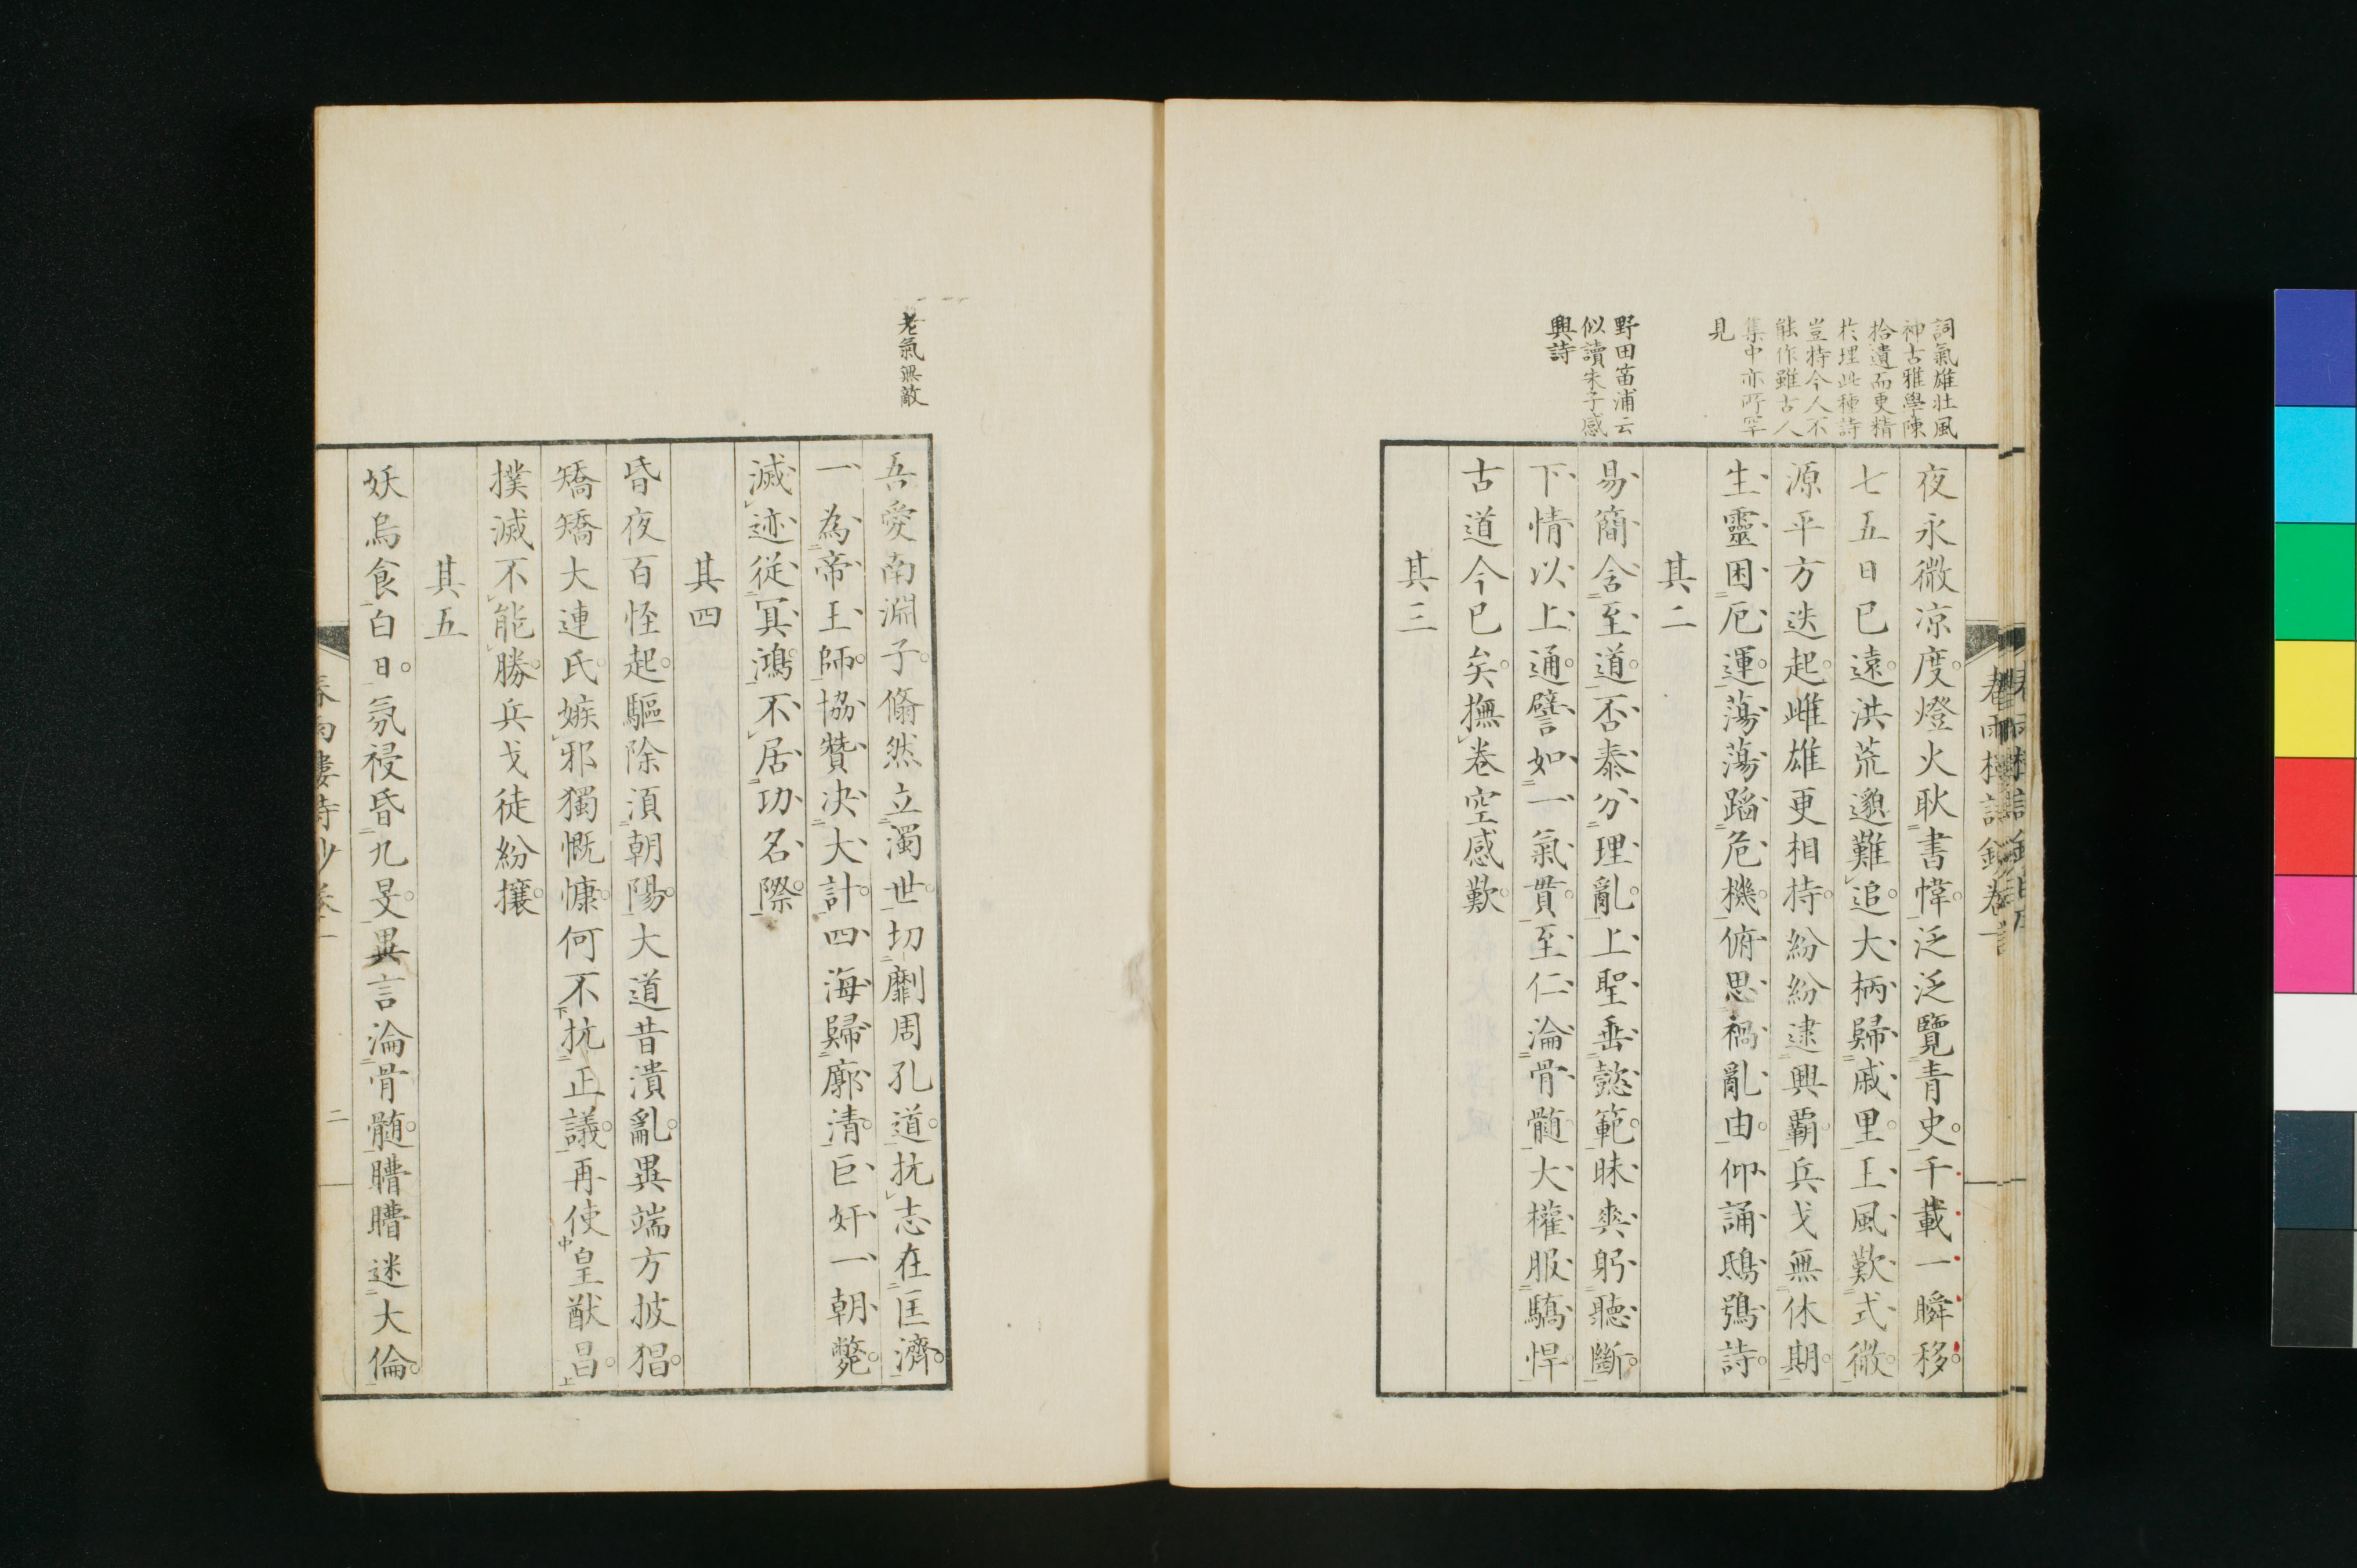 詞氣雄壯風
神古雅學陳
拾遺而更精
於理此種詩
豈特今人不
能作雖古人
集中亦所罕
見
野田笛浦云
似讀朱子感
興詩
夜永微涼度燈火耿書幃泛泛覽青史千載一瞬移
七五日已遠洪荒邈難追大柄歸戚里王風歎式微
源平方迭起雌雄更相持紛紛逮興霸兵戈無休期
生靈困厄運蕩蕩蹈危機俯思禍亂由仰誦鴟鴞詩
其二
易簡含至道否泰分理亂上聖垂懿範昧爽躬聽斷
下情以上通譬如一氣貫至仁淪骨髓大權服驕悍
古道今已矣撫卷空感歎
其三
老氣無敵
吾愛南淵子翛然立濁世切劘周孔道抗志在匡濟
一為帝王師協贊決大計四海歸廓清巨奸一朝斃
滅迹從冥鴻不居功名際
其四
昏夜百怪起驅除須朝陽大道昔潰亂異端方披猖
矯矯大連氏嫉邪獨慨慷何不抗正議再使皇猷昌
撲滅不能勝兵戈徒紛攘
其五
妖烏食白日氛祲昏九旻異言淪骨髓瞢瞢迷大倫
春雨樓詩鈔卷一
二